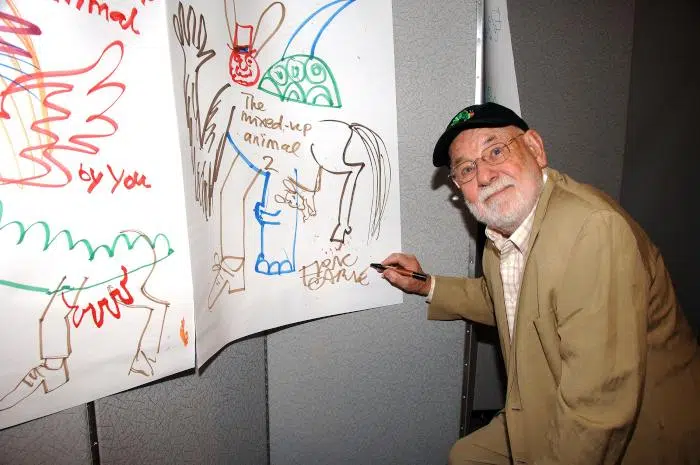 animal
by You
The
mixed-up
animal
2
ERIC
CARLE